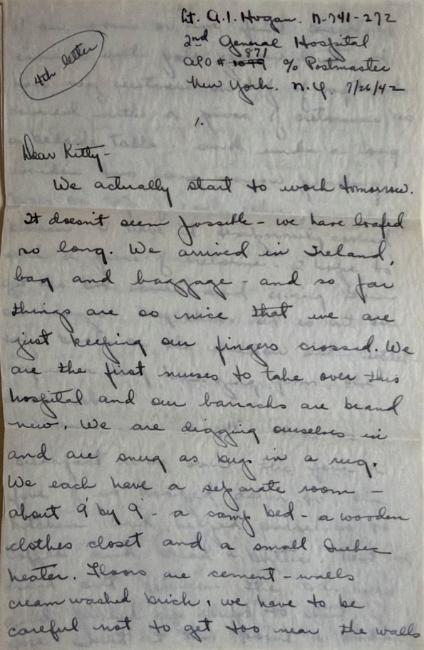 Lt. A.I. Hogan. N-741-272
2nd General Hospital
871
APO # 1099 % Postmaster
New York. N.Y. 7/26/42
4th letter
1.
Dear Kitty-
We actually start to work tomorrow.
It doesn't seem possible - we have loafed
so long. We arrived in Ireland,
bag and baggage - and so far
things are so nice that we are
just keeping our fingers crossed. We
are the first nurses to take over this
hospital and our barracks are brand
new. We are digging ourselves in
and are snug as bugs in a rug.
We each have a separate room -
about 9' by 9' - a camp bed - a wooden
clothes closet and a small Quebec
heater. Floors are cement - walls
cream washed brick, we have to be
careful not to get too near the walls